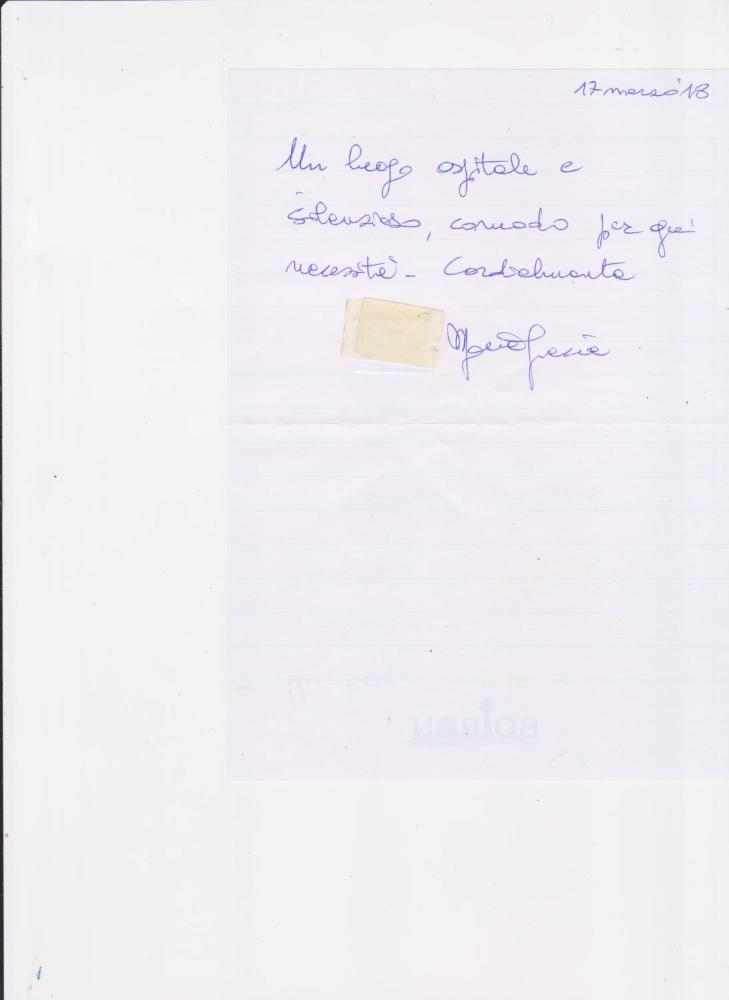 17 marzo '13
Un luogo ospitale e
silenzioso, comodo per
necessità - Cordialmente
Maria Grazia
BOIRON